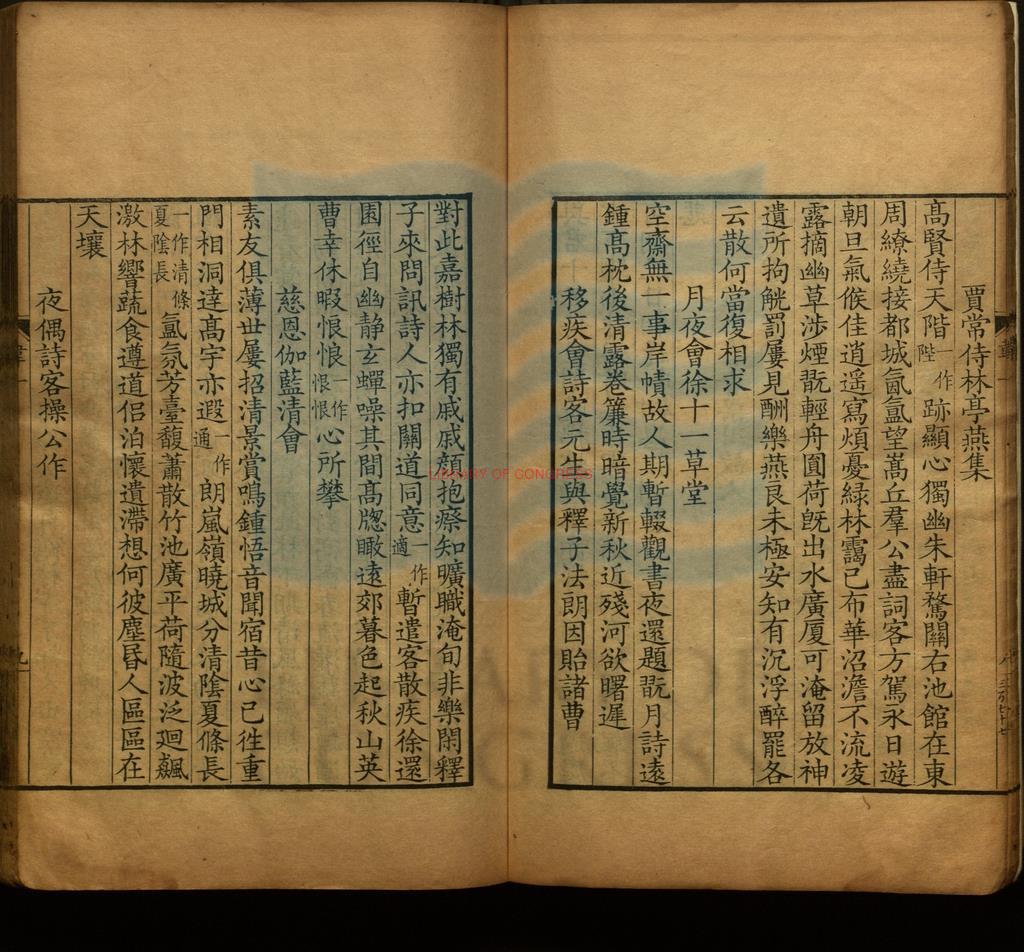 賈常侍林亭燕集
高賢侍天階一作陛跡顯心獨幽朱軒騖關右池館在東
周繚繞接都城氤氳望嵩丘羣公盡詞客方駕永日遊
朝旦氣候佳逍遥寫煩憂緑林靄已布華沼澹不流凌
露摘幽草涉煙翫輕舟圓荷既出水廣厦可淹留放神
遺所拘觥罰屢見酬樂燕良未極安知有沉浮醉罷各
云散何當復相求
月夜會徐十一草堂
空齋無一事岸幘故人期暫輟觀書夜還題翫月詩遠
鍾高枕後清露卷簾時暗覺新秋近殘河欲曙遲
移疾會詩客元生與釋子法朗因貽諸曹
對此嘉樹林獨有戚戚顔抱瘵知曠職淹旬非樂閑釋
子來問訊詩人亦扣關道同意一作適暫遣客散疾徐還
園徑自幽静玄蟬噪其間高牕瞰遠郊暮色起秋山英
曹幸休暇悢悢一作恨恨心所攀
慈恩伽藍清會
素友俱薄世屢招清景賞鳴鍾悟音聞宿昔心已徃重
門相洞達高宇亦遐一作通朗嵐嶺曉城分清陰夏條長
一作清條夏陰長氳氛芳臺馥蕭散竹池廣平荷隨波泛迴飆
激林響蔬食遵道侣泊懷遺滯想何彼塵昬人區區在
天壤
夜偶詩客操公作
LIBRARY OF CONGRESS